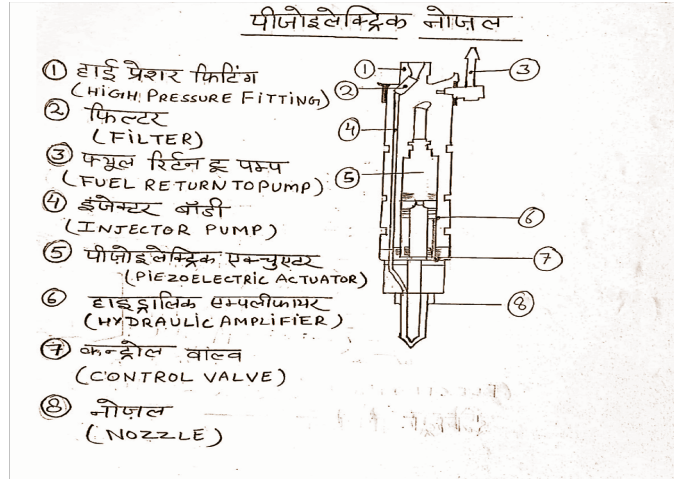 पीज़ोइलेक्ट्रिक नोज़ल
① हाई प्रेशर फिटिंग
(HIGH PRESSURE FITTING)
② फिल्टर
(FILTER)
③ फ्यूल रिर्टन टू पम्प
(FUEL RETURN TO PUMP)
④ इंजेक्टर बॉडी
(INJECTOR PUMP)
⑤ पीज़ोइलेक्ट्रिक एक्चुएटर
(PIEZOELECTRIC ACTUATOR)
⑥ हाइड्रालिक एम्पलीफायर
(HYDRAULIC AMPLIFIER)
⑦ कन्ट्रोल वाल्व
(CONTROL VALVE)
⑧ नोज़ल
(NOZZLE)
①
②
③
④
⑤
⑥
⑦
⑧